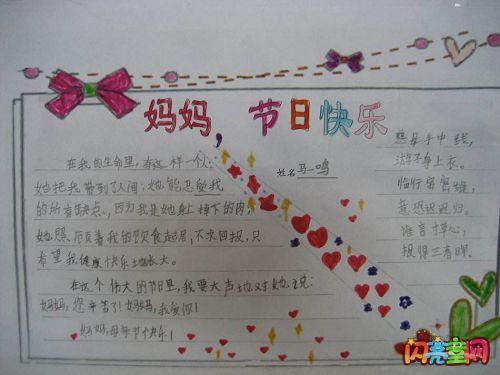 妈妈,节日快乐
姓名马一鸣
在我的生命里,有这样一个人:
她把我带到了人间;她能忍受我
的所有缺点,因为我是她身上掉下的肉;
她照顾着我的饮食起居,不求回报,只
希望我健康快乐地长大。
在这个伟大的节日里,我要大声地对她说:
妈妈,您辛苦了!妈妈,我爱你!
妈妈,母亲节快乐!
慈母手中线,
游子身上衣。
临行密密缝,
意恐迟迟归。
谁言寸草心,
报得三春晖。
闪亮童网